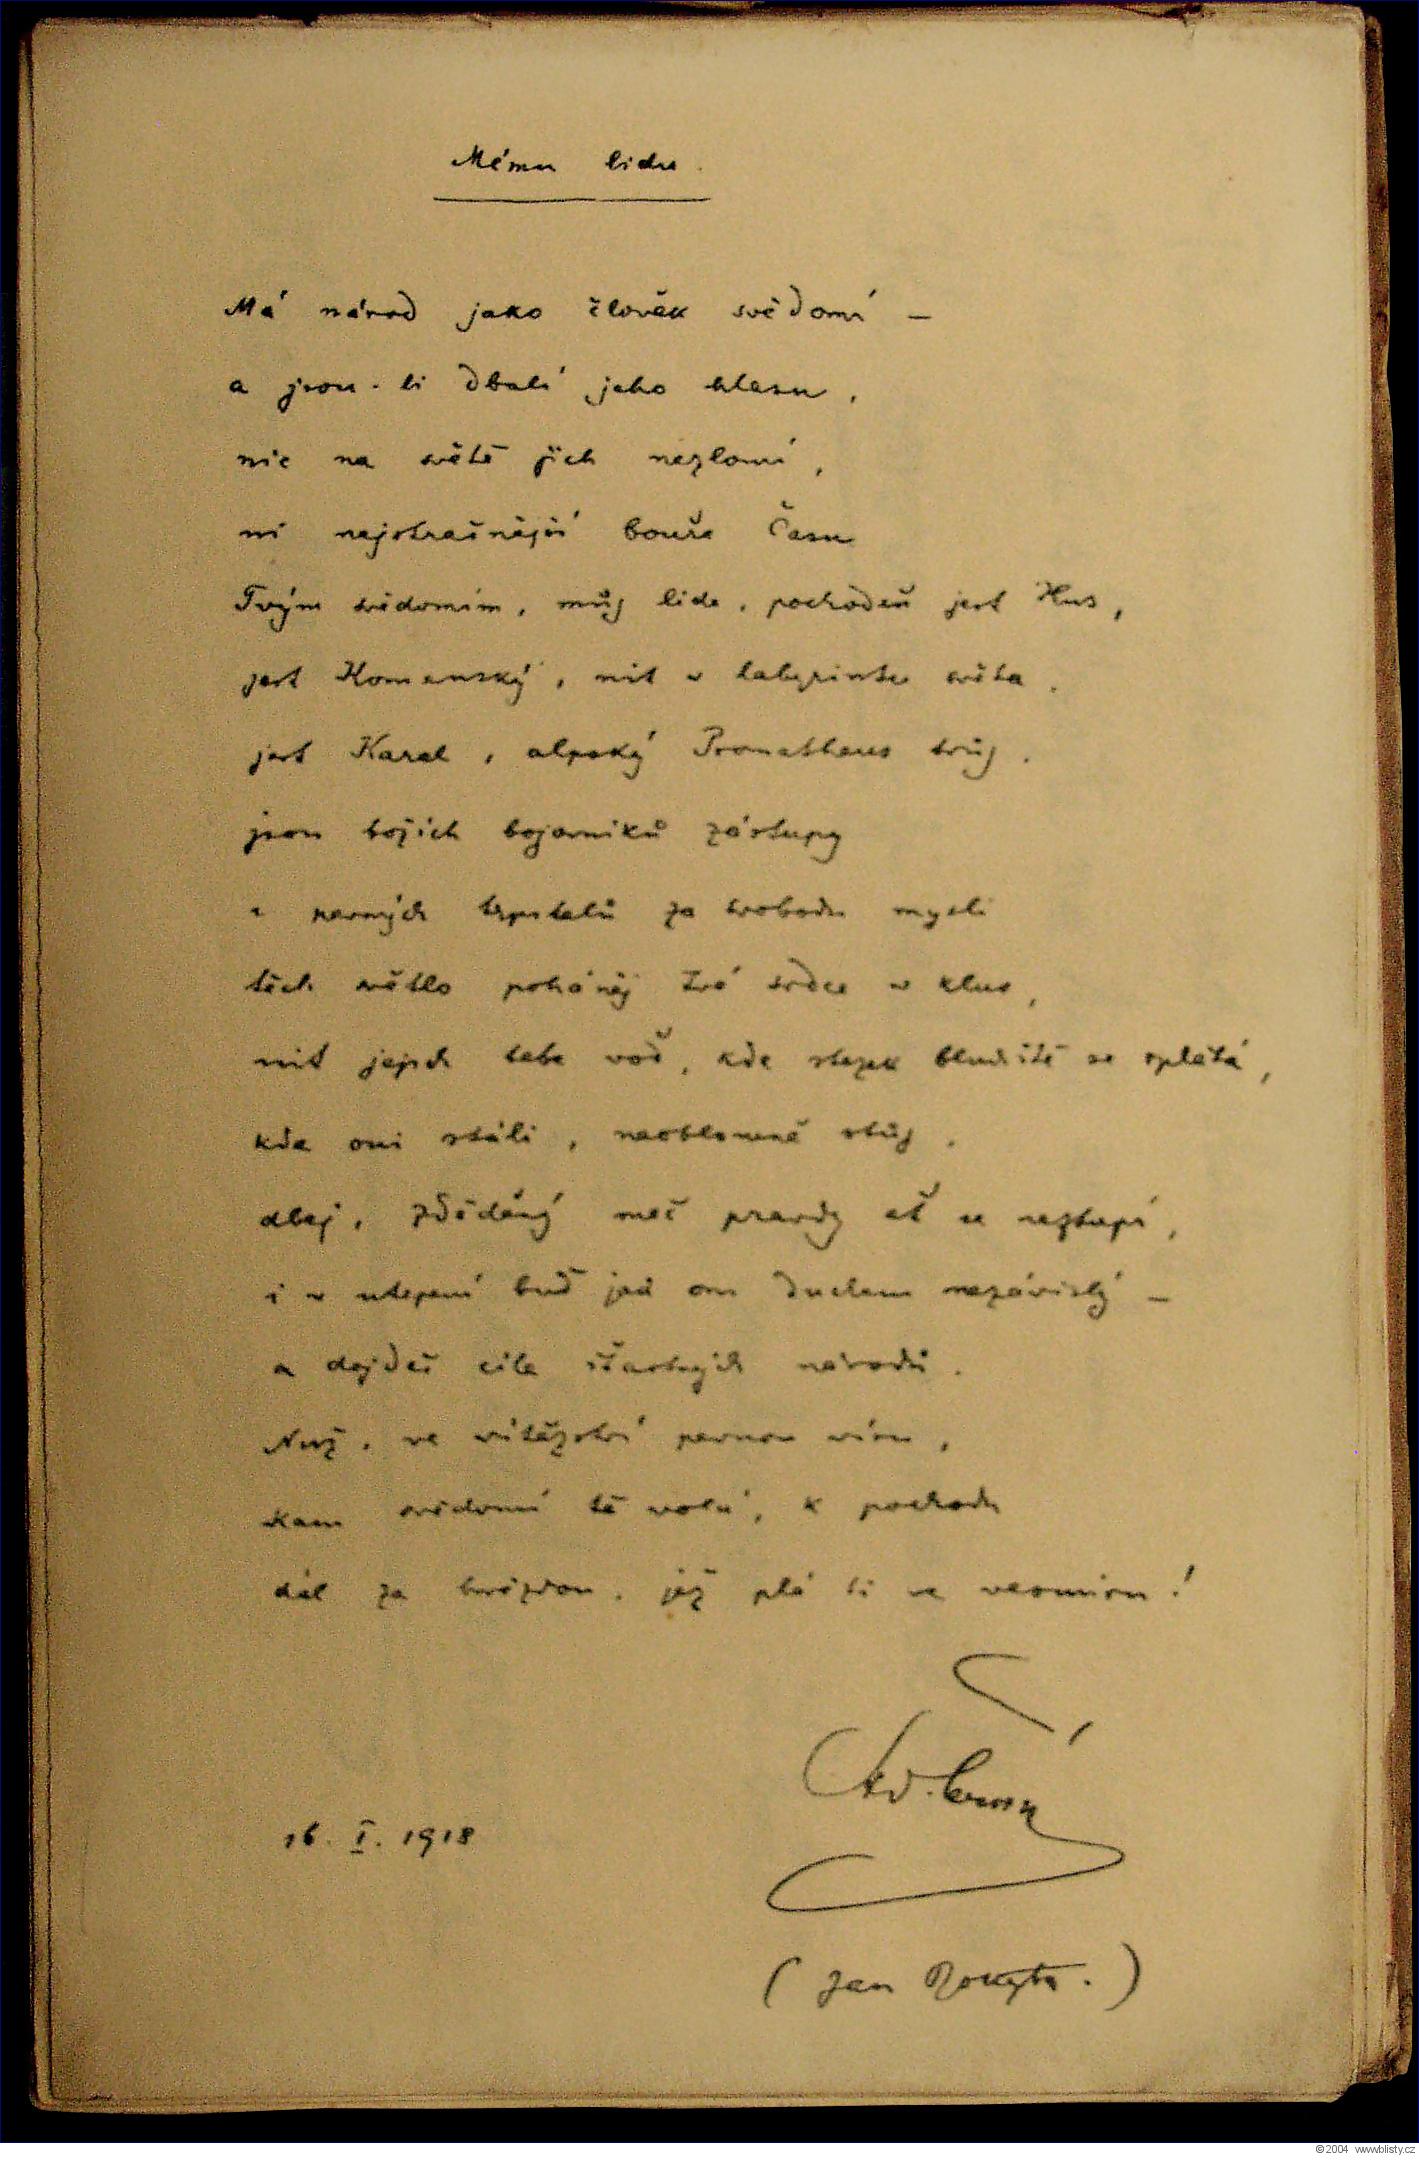 Mému lidu.
Má národ jako člověk svědomí –
a jsou-li dbalí jeho hlasu,
nic na světě jich nezlomí,
ni nejstrašnější bouře Času
Tvým svědomím, můj lide, pochodeň jest Hus,
jest Komenský, nit v labyrintu světa,
jest Karel, alpský Prometheus tvůj.
jsou božích bojovníků zástupy
a pevných trpitelů za svobodu mysli
těch světlo poháněj tvé srdce v klus,
nit jejich tebe voď, kde stezek bludiště se splétá,
kde oni stáli, neoblomně stůj.
dbej, zděděný meč pravdy ať se neztupí,
i v utrpení buď jak oni duchem nezávislý –
a dojdeš cíle šťastných národů.
Nuž, ve vítězství pevnou vírou,
kam svědomí tě volá, k pochodu
dál za hvězdou, jež plá ti ve vesmíru!
Ad. Černý
16. I. 1918
(Jan Rokyta.)
©2004 www.blisty.cz